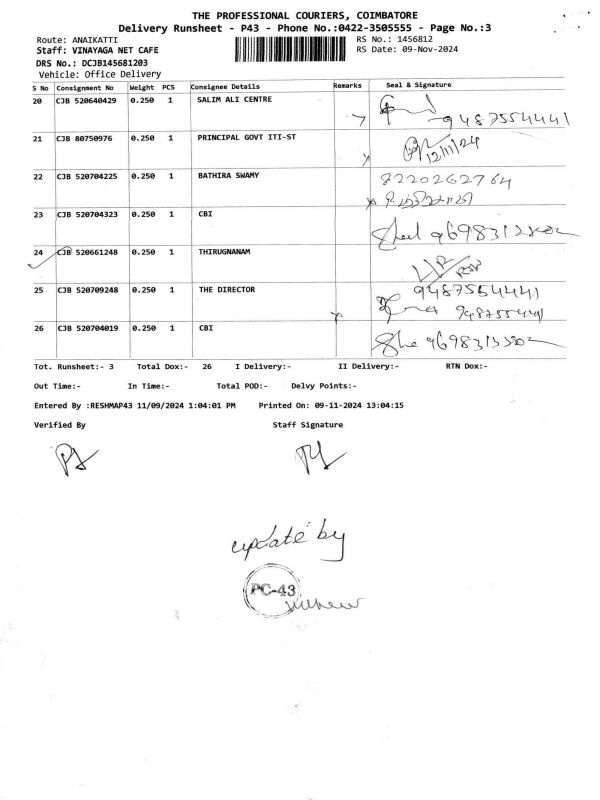 THE PROFESSIONAL COURIERS, COIMBATORE
Delivery Runsheet - P43 - Phone No.:0422-3505555 - Page No.:3
Route: ANAIKATTI RS No.: 1456812
Staff: VINAYAGA NET CAFE RS Date: 09-Nov-2024
DRS No.: DCJB145681203
Vehicle: Office Delivery
S No Consignment No Weight PCS Consignee Details Remarks Seal & Signature
20 CJB 520640429 0.250 1 SALIM ALI CENTRE
9487554441
21 CJB 80750976 0.250 1 PRINCIPAL GOVT ITI-ST
12/11/24
22 CJB 520704225 0.250 1 BATHIRA SWAMY 8220262764
23 CJB 520704323 0.250 1 CBI
24 CJB 520661248 0.250 1 THIRUGNANAM
25 CJB 520709248 0.250 1 THE DIRECTOR 9487554441
26 CJB 520704019 0.250 1 CBI
Tot. Runsheet:- 3 Total Dox:- 26 I Delivery:- II Delivery:- RTN Dox:-
Out Time:- In Time:- Total POD:- Delvy Points:-
Entered By :RESHMAP43 11/09/2024 1:04:01 PM Printed On: 09-11-2024 13:04:15
Verified By Staff Signature
update by
PC-43